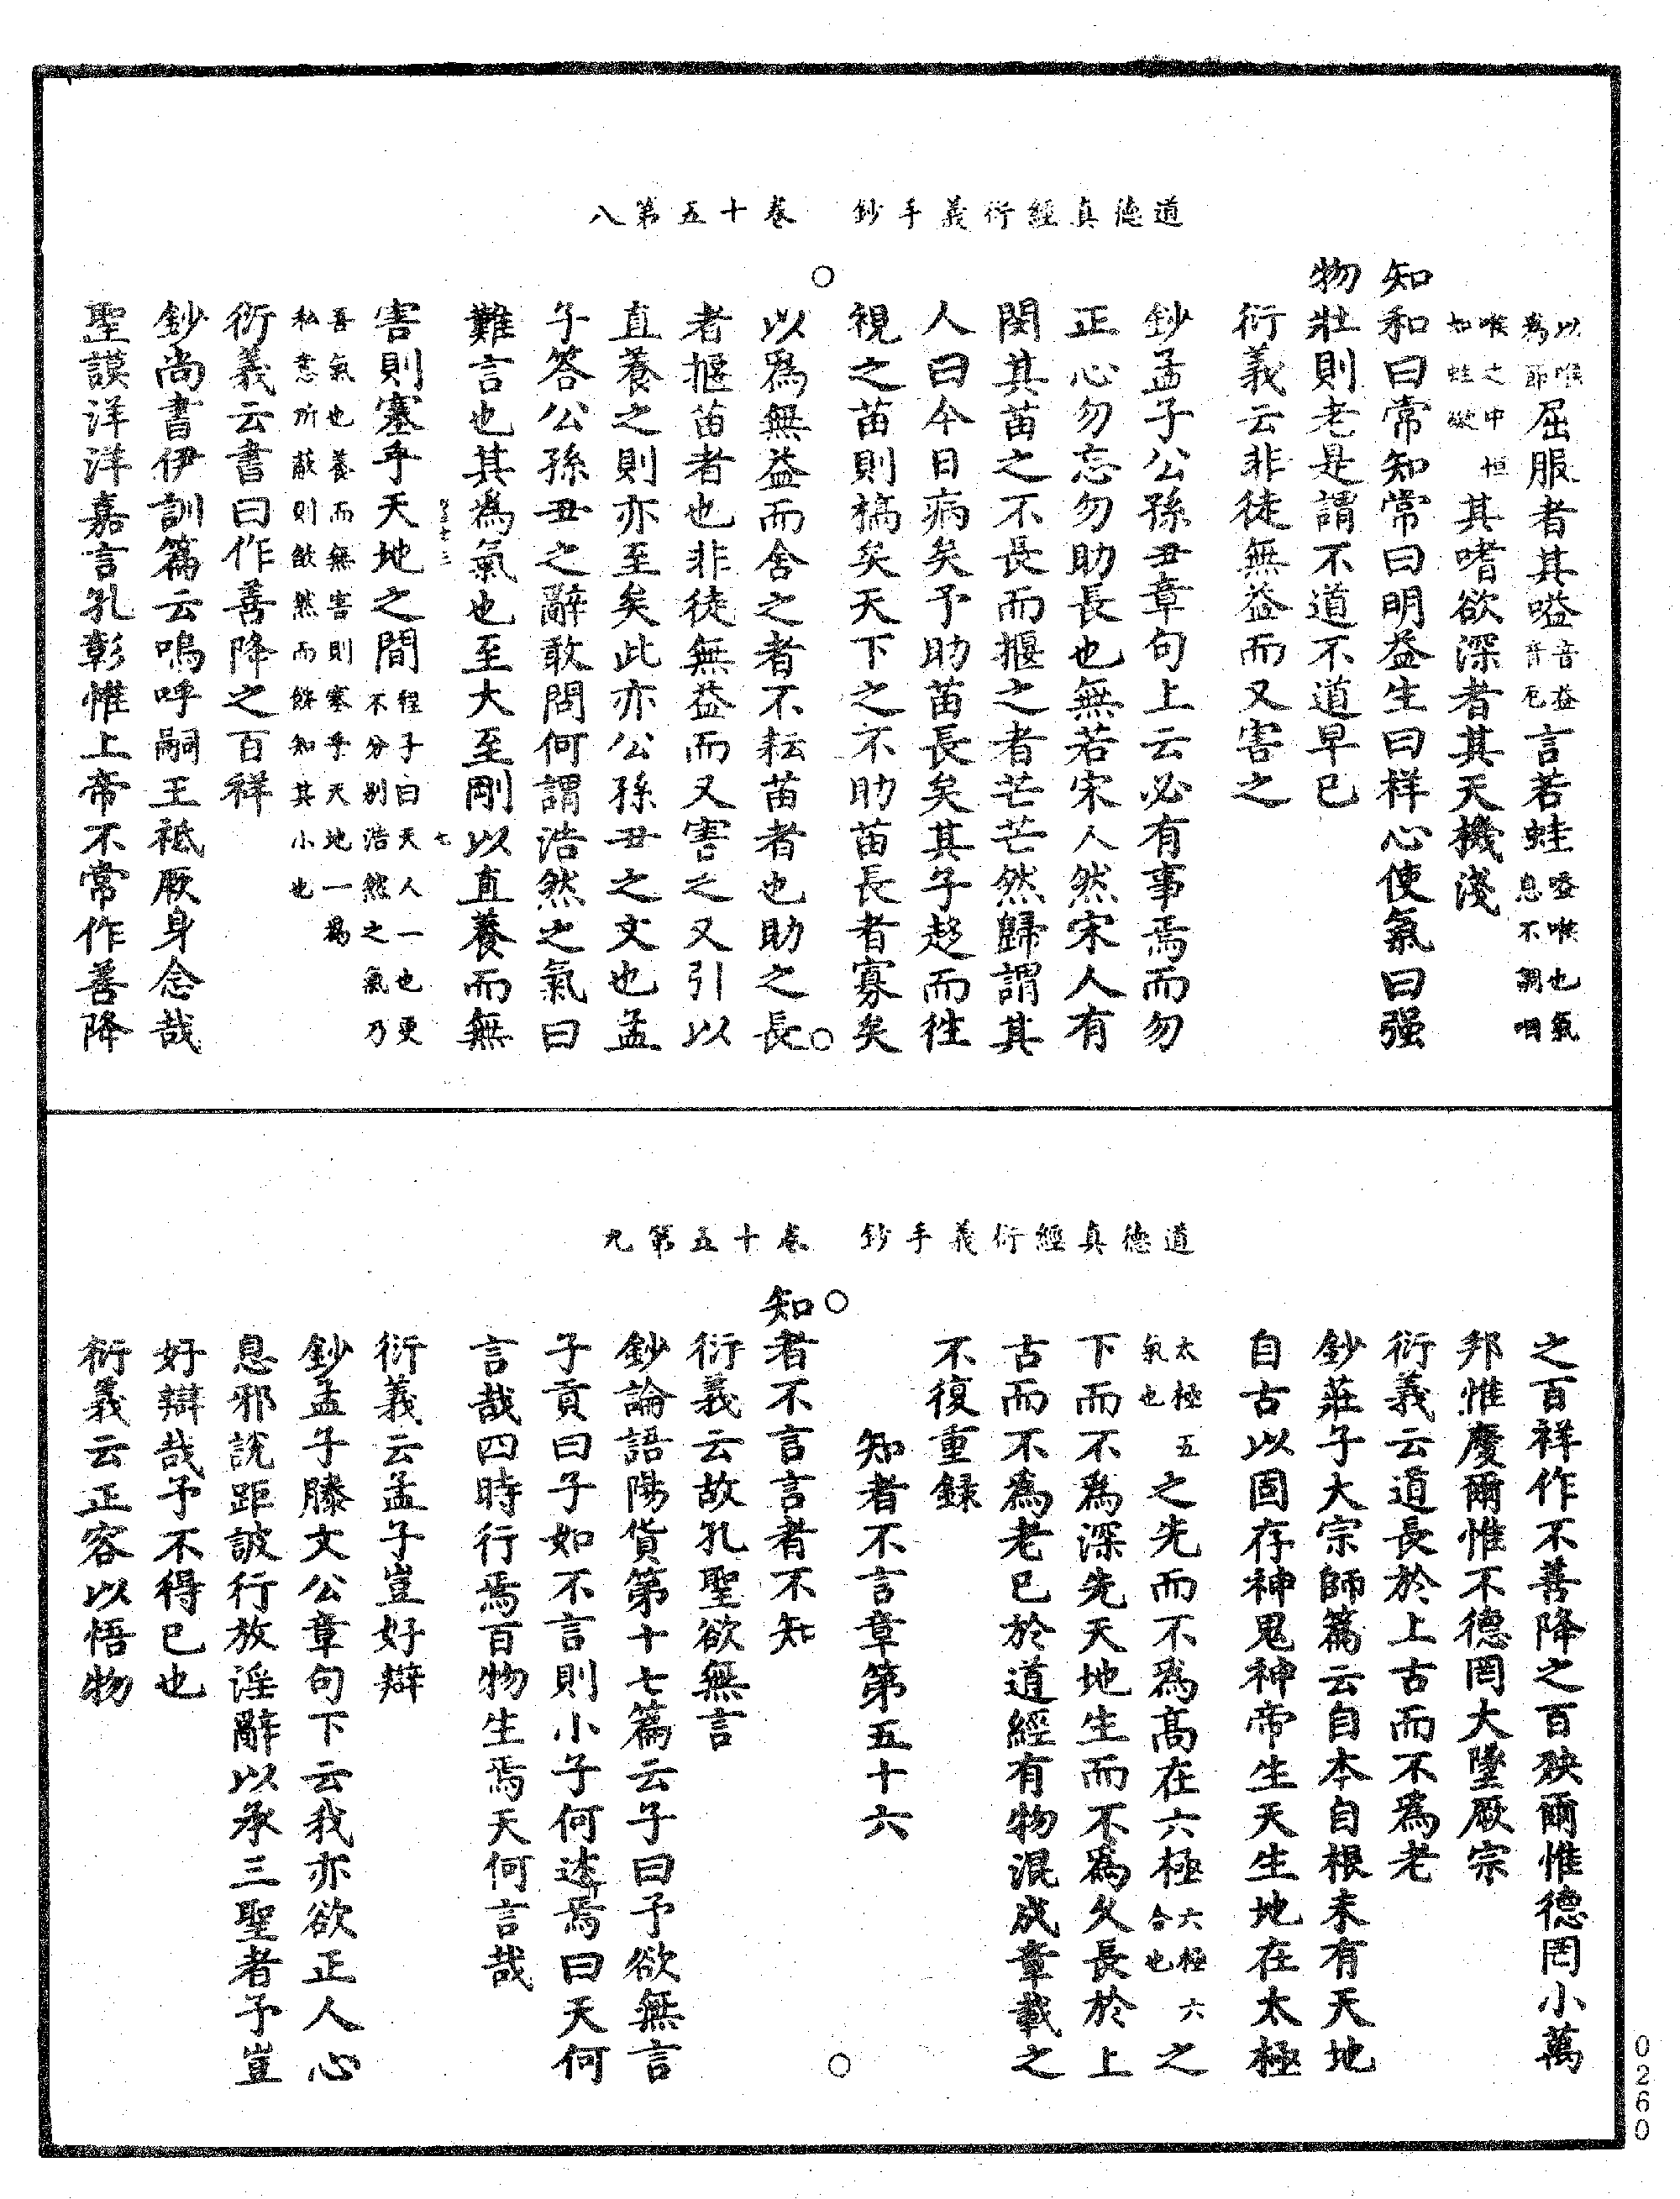 道德真經衍義手鈔　卷十五第八
以喉喉爲節屈服者其嗌音益音厄言若蛙嗌喉也氣息不調咽
喉之中恒如蛙噦其嗜欲深者其天機淺
知和曰常知常曰明益生曰祥心使氣曰强
物壯則老是謂不道不道早已
衍義云非徒無益而又害之
鈔孟子公孫丑章句上云必有事焉而勿
正心勿忘勿助長也無若宋人然宋人有
閔其苗之不長而揠之者芒芒然歸謂其
人曰今日病矣予助苗長矣其子趍而往
視之苗則槁矣天下之不助苗長者寡矣
以爲無益而舍之者不耘苗者也助之長
者揠苗者也非徒無益而又害之又引以
直養之則亦至矣此亦公孫丑之文也孟
子答公孫丑之辭敢問何謂浩然之氣曰
難言也其爲氣也至大至剛以直養而無
七
害則塞乎天地之間程子曰天人一也更不分別浩然之氣乃
吾氣也養而無害則塞乎天地一爲私意所蔽則歉然而餒知其小也
衍義云書曰作善降之百祥
鈔尚書伊訓篇云嗚呼嗣王祗厥身念哉
聖謨洋洋嘉言孔彰惟上帝不常作善降
道德真經衍義手鈔　卷十五第九
之百祥作不善降之百殃爾惟德罔小萬
邦惟慶爾惟不德罔大墜厥宗
衍義云道長於上古而不爲老
鈔莊子大宗師篇云自本自根未有天地
自古以固存神鬼神帝生天生地在太極
太極五氣也之先而不爲高在六極六極六合也之
下而不爲深先天地生而不爲久長於上
古而不爲老已於道經有物混成章載之
不復重録
知者不言章第五十六
知者不言言者不知
衍義云故孔聖欲無言
鈔論語陽貨第十七篇云子曰予欲無言
子貢曰子如不言則小子何述焉曰天何
言哉四時行焉百物生焉天何言哉
衍義云孟子豈好辯
鈔孟子滕文公章句下云我亦欲正人心
息邪說距詖行放淫辭以承三聖者予豈
好辯哉予不得已也
衍義云正容以悟物
0260